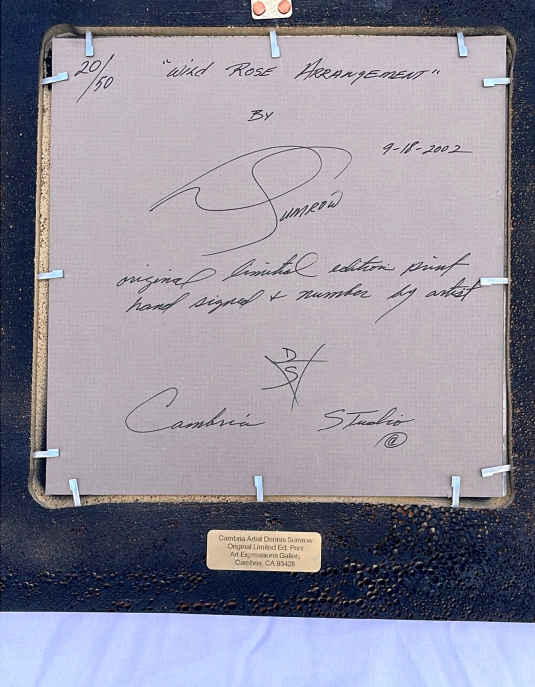 20/50 "Wild Rose Arrangement"
By
9-18-2002
D Sumrow
original limited edition print
hand signed + number by artist
DS
Cambria Studio
@
Cambria Artist Dennis Sumrow
Original Limited Ed. Print
Art Expressions Gallery
Cambria, CA 93428